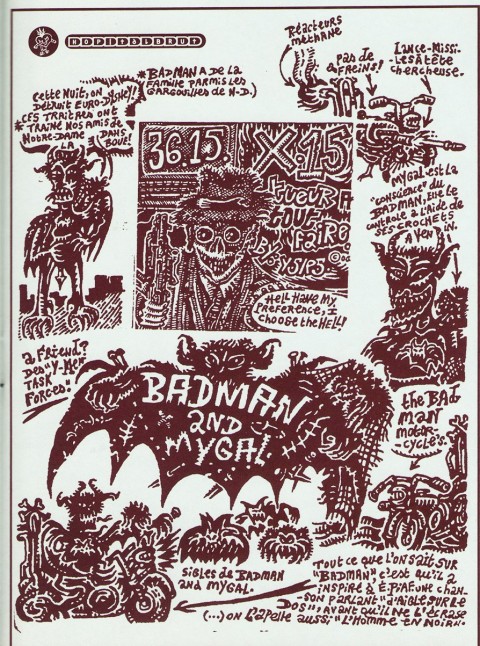 Réacteurs
méthane
pas de
freins!
Lance-Missi-
les à tête
chercheuse.
Cette Nuit, on
Détruit EURO-DISNEY!
CES TRAITRES ONT
* TRAÎNÉ NOS AMIS DE
NOTRE-DAME
DANS
LA
BOUE!
* BADMAN A DE LA
FAMILLE PARMIS LES
GARGOUILLES DE N-D.)
36.15. X.15
TUEUR A
TOUT
FAIRE
HELL HAVE MY
PREFERENCE, I
CHOOSE THE HELL!
MYGAL EST LA
"CONSCIENCE" DU
BADMAN, ELLE LE
CONTROLE A L'AIDE DE
SES CROCHETS
A VENIN.
a FRiend?
Des "Y-Men
TASK
FORCES."
BADMAN
AND
MYGAL
the BAD
MAN
MOTOR-
CYCLES.
SIGLES DE BADMAN
and MYGAL.
TOUT CE QUE L'ON SAIT SUR
"BADMAN", C'EST QU'IL A
INSPIRÉ À E.PIAF UNE CHAN-
SON PARLANT "D'AIGLE SUR LE
DOS", AVANT QU'IL NE L'ÉCRASE
(...) ON L'APELLE AUSSI: "L'HOMME EN NOIR".